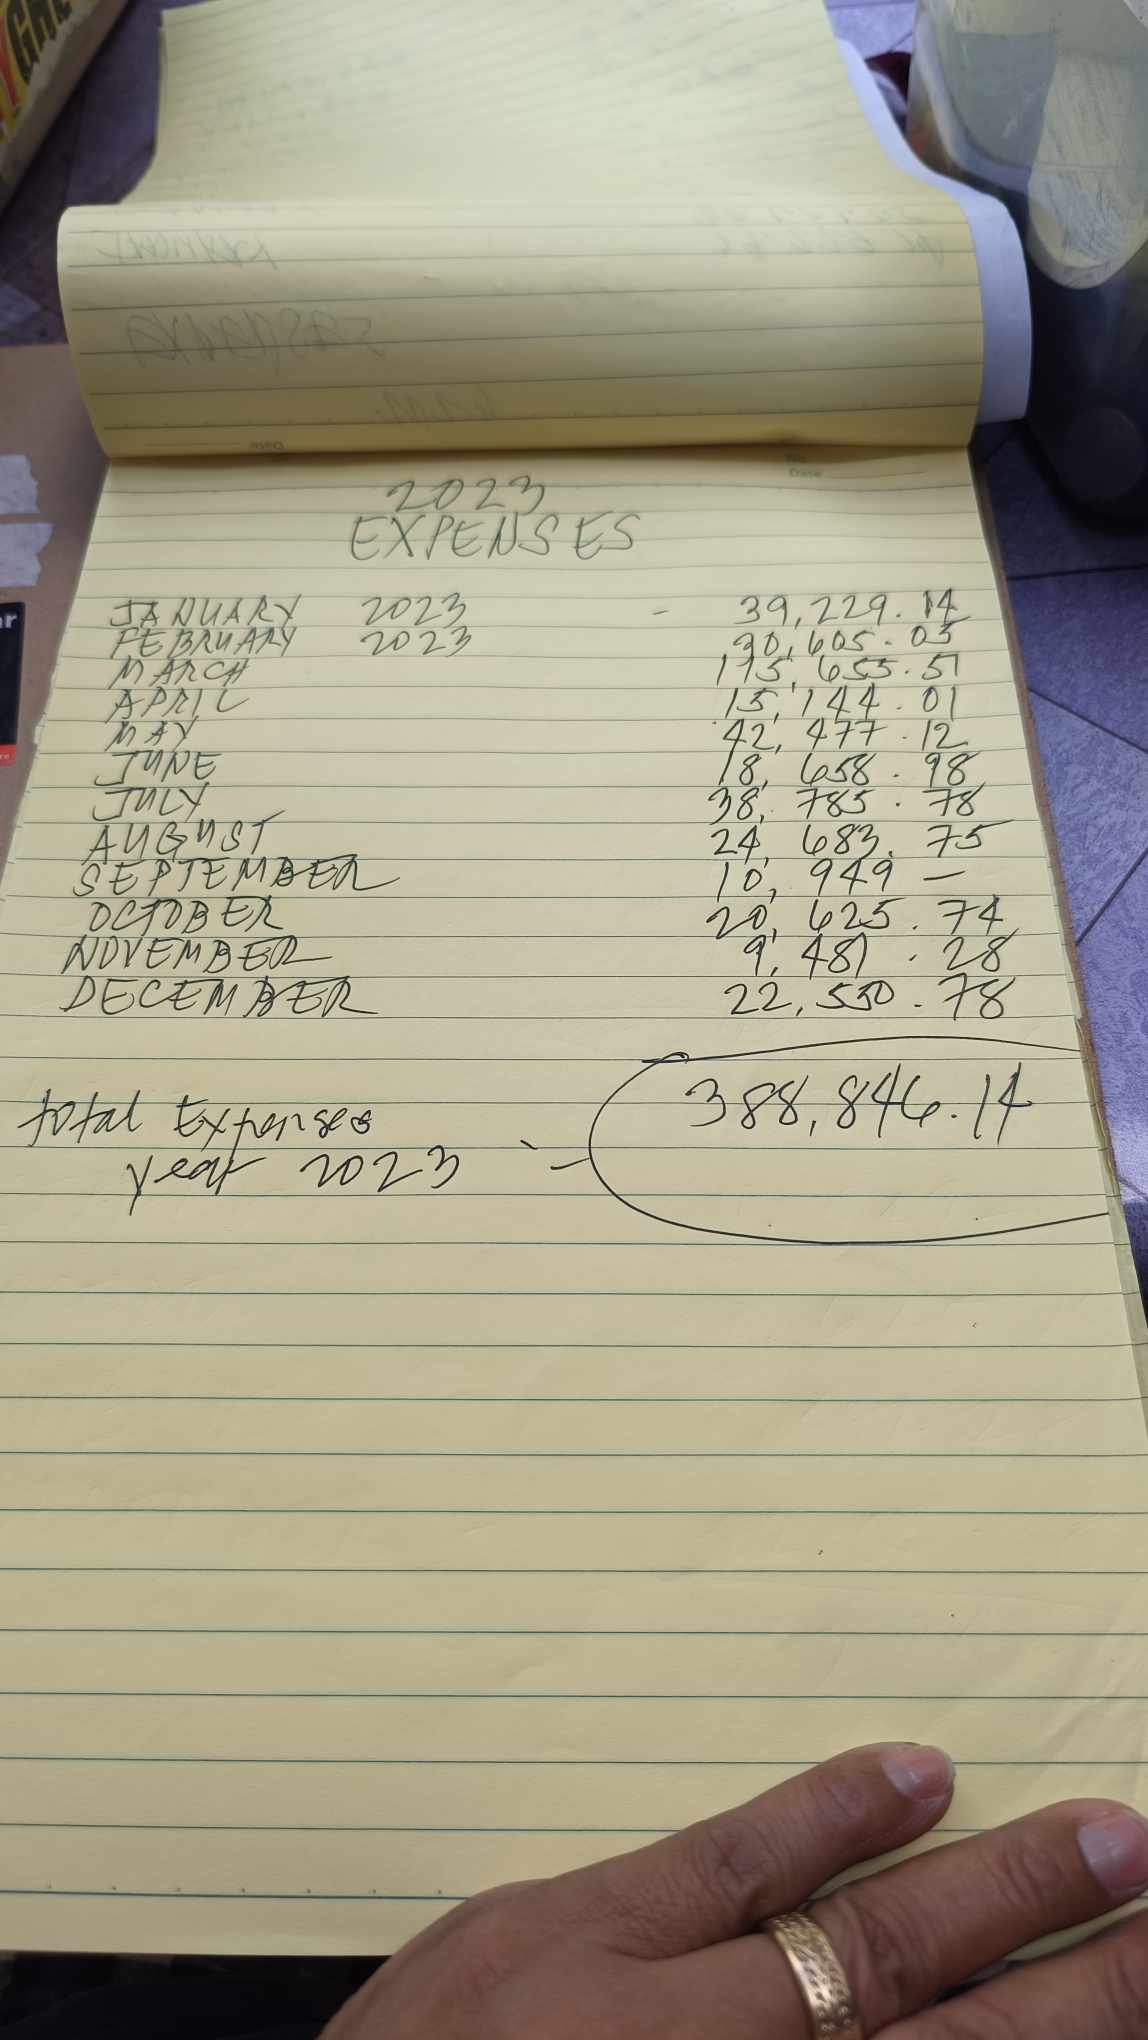 2023
EXPENSES
JANUARY 2023 - 39,229.14
FEBRUARY 2023 30,605.05
MARCH 115,655.51
APRIL 15,144.01
MAY 42,477.12
JUNE 18,658.98
JULY 38,785.78
AUGUST 24,683.75
SEPTEMBER 10,949 —
OCTOBER 20,625.74
NOVEMBER 9,481.28
DECEMBER 22,550.78
total Expenses 388,846.14
year 2023